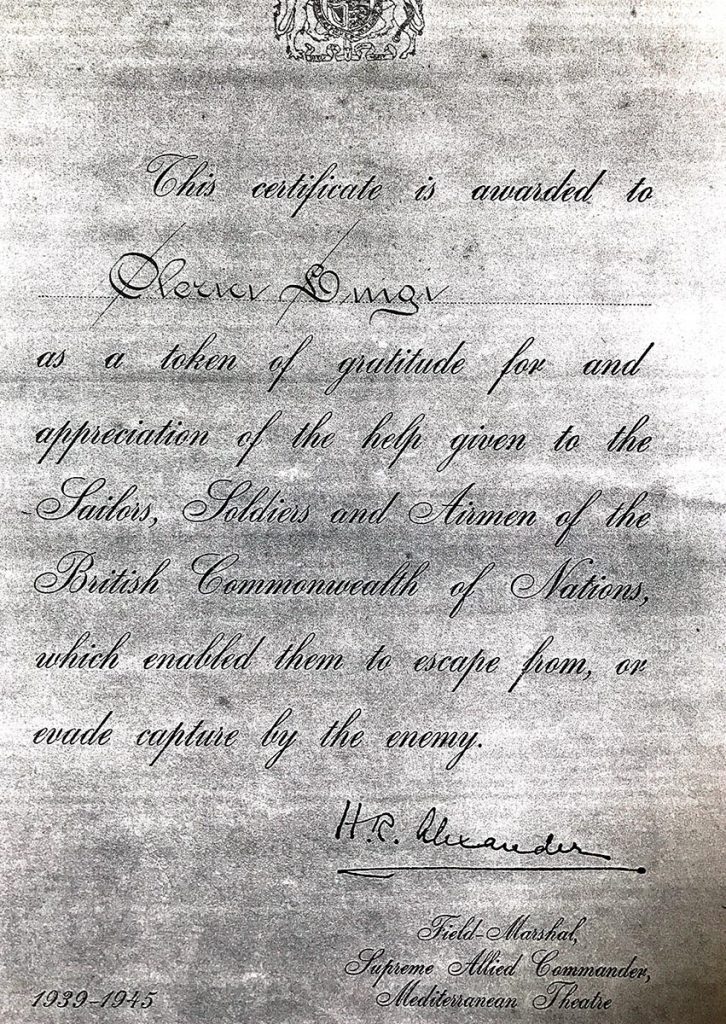 This certificate is awarded to
Luigi
as a token of gratitude for and
appreciation of the help given to the
Sailors, Soldiers and Airmen of the
British Commonwealth of Nations,
which enabled them to escape from, or
evade capture by the enemy.
H.R. Alexander
Field-Marshal,
Supreme Allied Commander,
Mediterranean Theatre
1939-1945